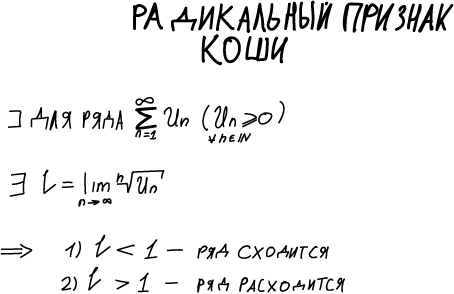 РАДИКАЛЬНЫЙ ПРИЗНАК
КОШИ
∃ ДЛЯ РЯДА ∑_{n=1}^{∞} Un (Un ⩾ 0) ∀n∈ℕ
∃ l = lim_{n→∞} ⁿ√Un
⟹ 1) l < 1 – РЯД СХОДИТСЯ
2) l > 1 – РЯД РАСХОДИТСЯ